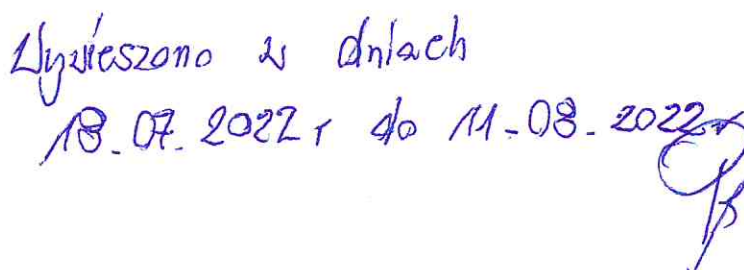 Wywieszono w dniach
18.07.2022r do 11-08.2022r